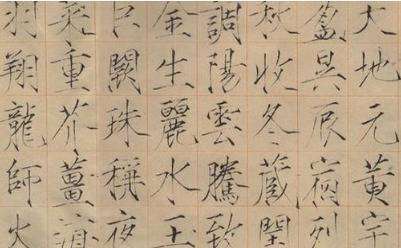 天地元黃宇
盈昃辰宿列
秋收冬藏閏
調陽雲騰致
金生麗水玉
巨闕珠稱夜
菜重芥薑
羽翔龍師火